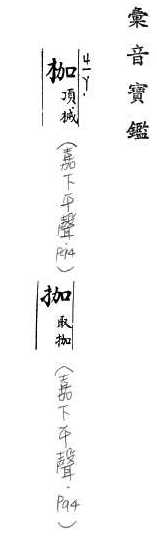 彙音寶鑑
ㄐㄧㄚ
枷 項械
(嘉下平聲 P.94)
拁 取拁
(嘉下平聲.P94)